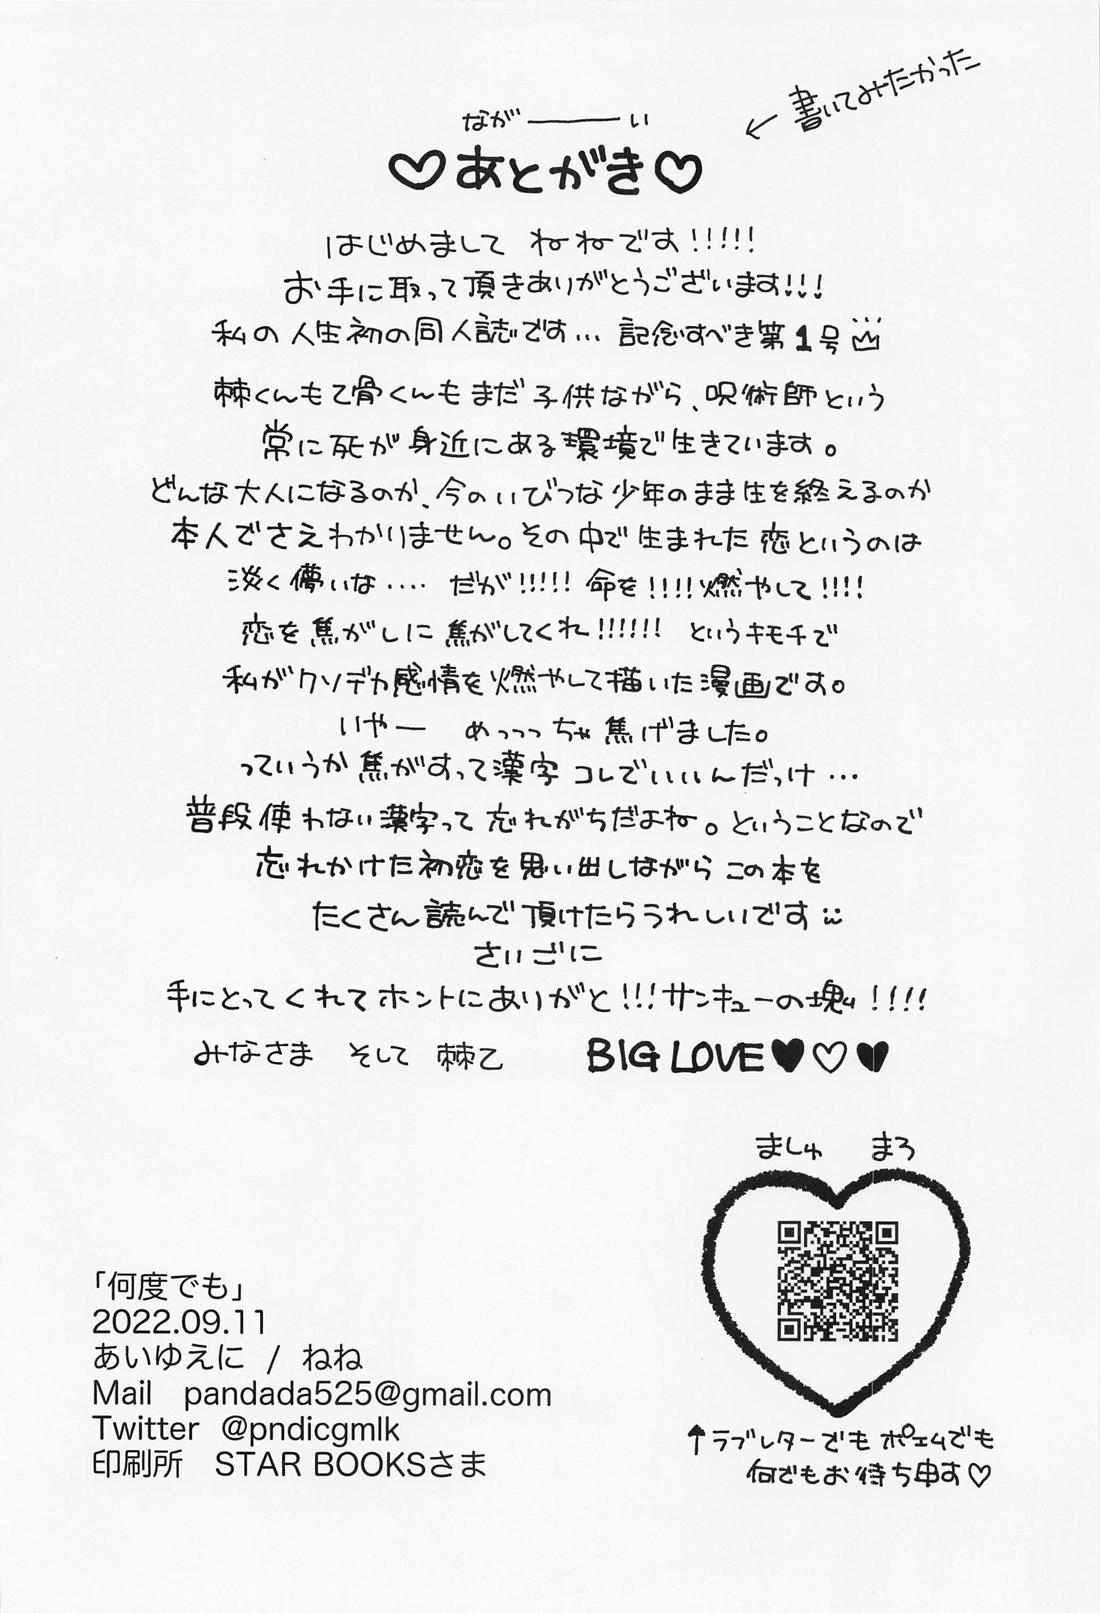 ← 書いてみたかった
なが――い
♡あとがき♡
はじめまして ねねです!!!!!
お手に取って頂きありがとうございます!!!
私の人生初の同人誌です… 記念すべき第1号
棘くんもて骨くんもまだ子供ながら、呪術師という
常に死が身近にある環境で生きています。
どんな大人になるのか、今のいびつな少年のまま生を終えるのか
本人でさえわかりません。その中で生まれた恋というのは
淡く儚いな…. だが!!!!! 命を!!!!燃やして!!!!
恋を焦がしに焦がしてくれ!!!!!! というキモチで
私がクソデカ感情を燃やして描いた漫画です。
いやー めっっっちゃ焦げました。
っていうか焦がすって漢字コレでいいんだっけ…
普段使わない漢字って忘れがちだよね。ということなので
忘れかけた初恋を思い出しながらこの本を
たくさん読んで頂けたらうれしいです
さいごに
手にとってくれてホントにありがと!!!サンキューの塊!!!!
みなさま そして 棘乙 BIG LOVE♥♡♥
ましゅ まろ
「何度でも」
2022.09.11
あいゆえに / ねね
Mail pandada525@gmail.com
Twitter @pndicgmlk
印刷所 STAR BOOKSさま
↑ラブレターでもポエムでも
何でもお待ち申す♡